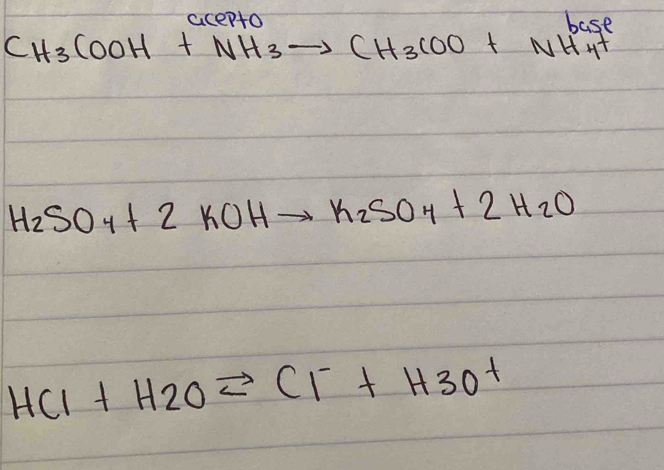 acepto base
CH3COOH + NH3 → CH3COO + NH4+
H2SO4 + 2 KOH → K2SO4 + 2 H2O
HCl + H2O ⇄ Cl⁻ + H3O+